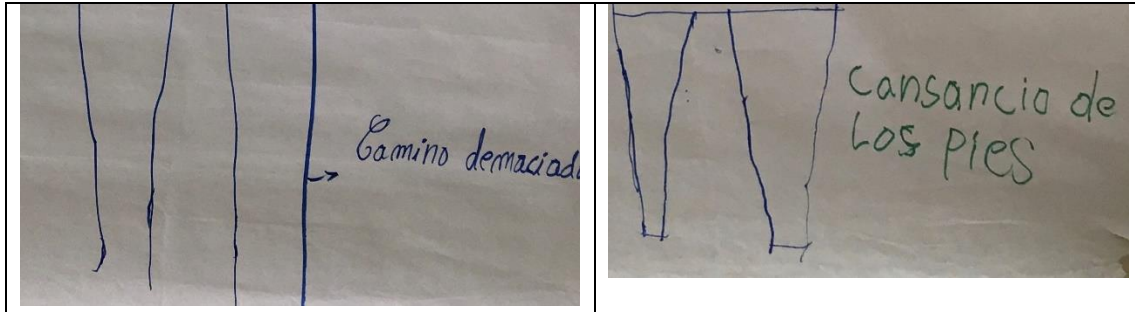 Camino demaciad
cansancio de
Los pies